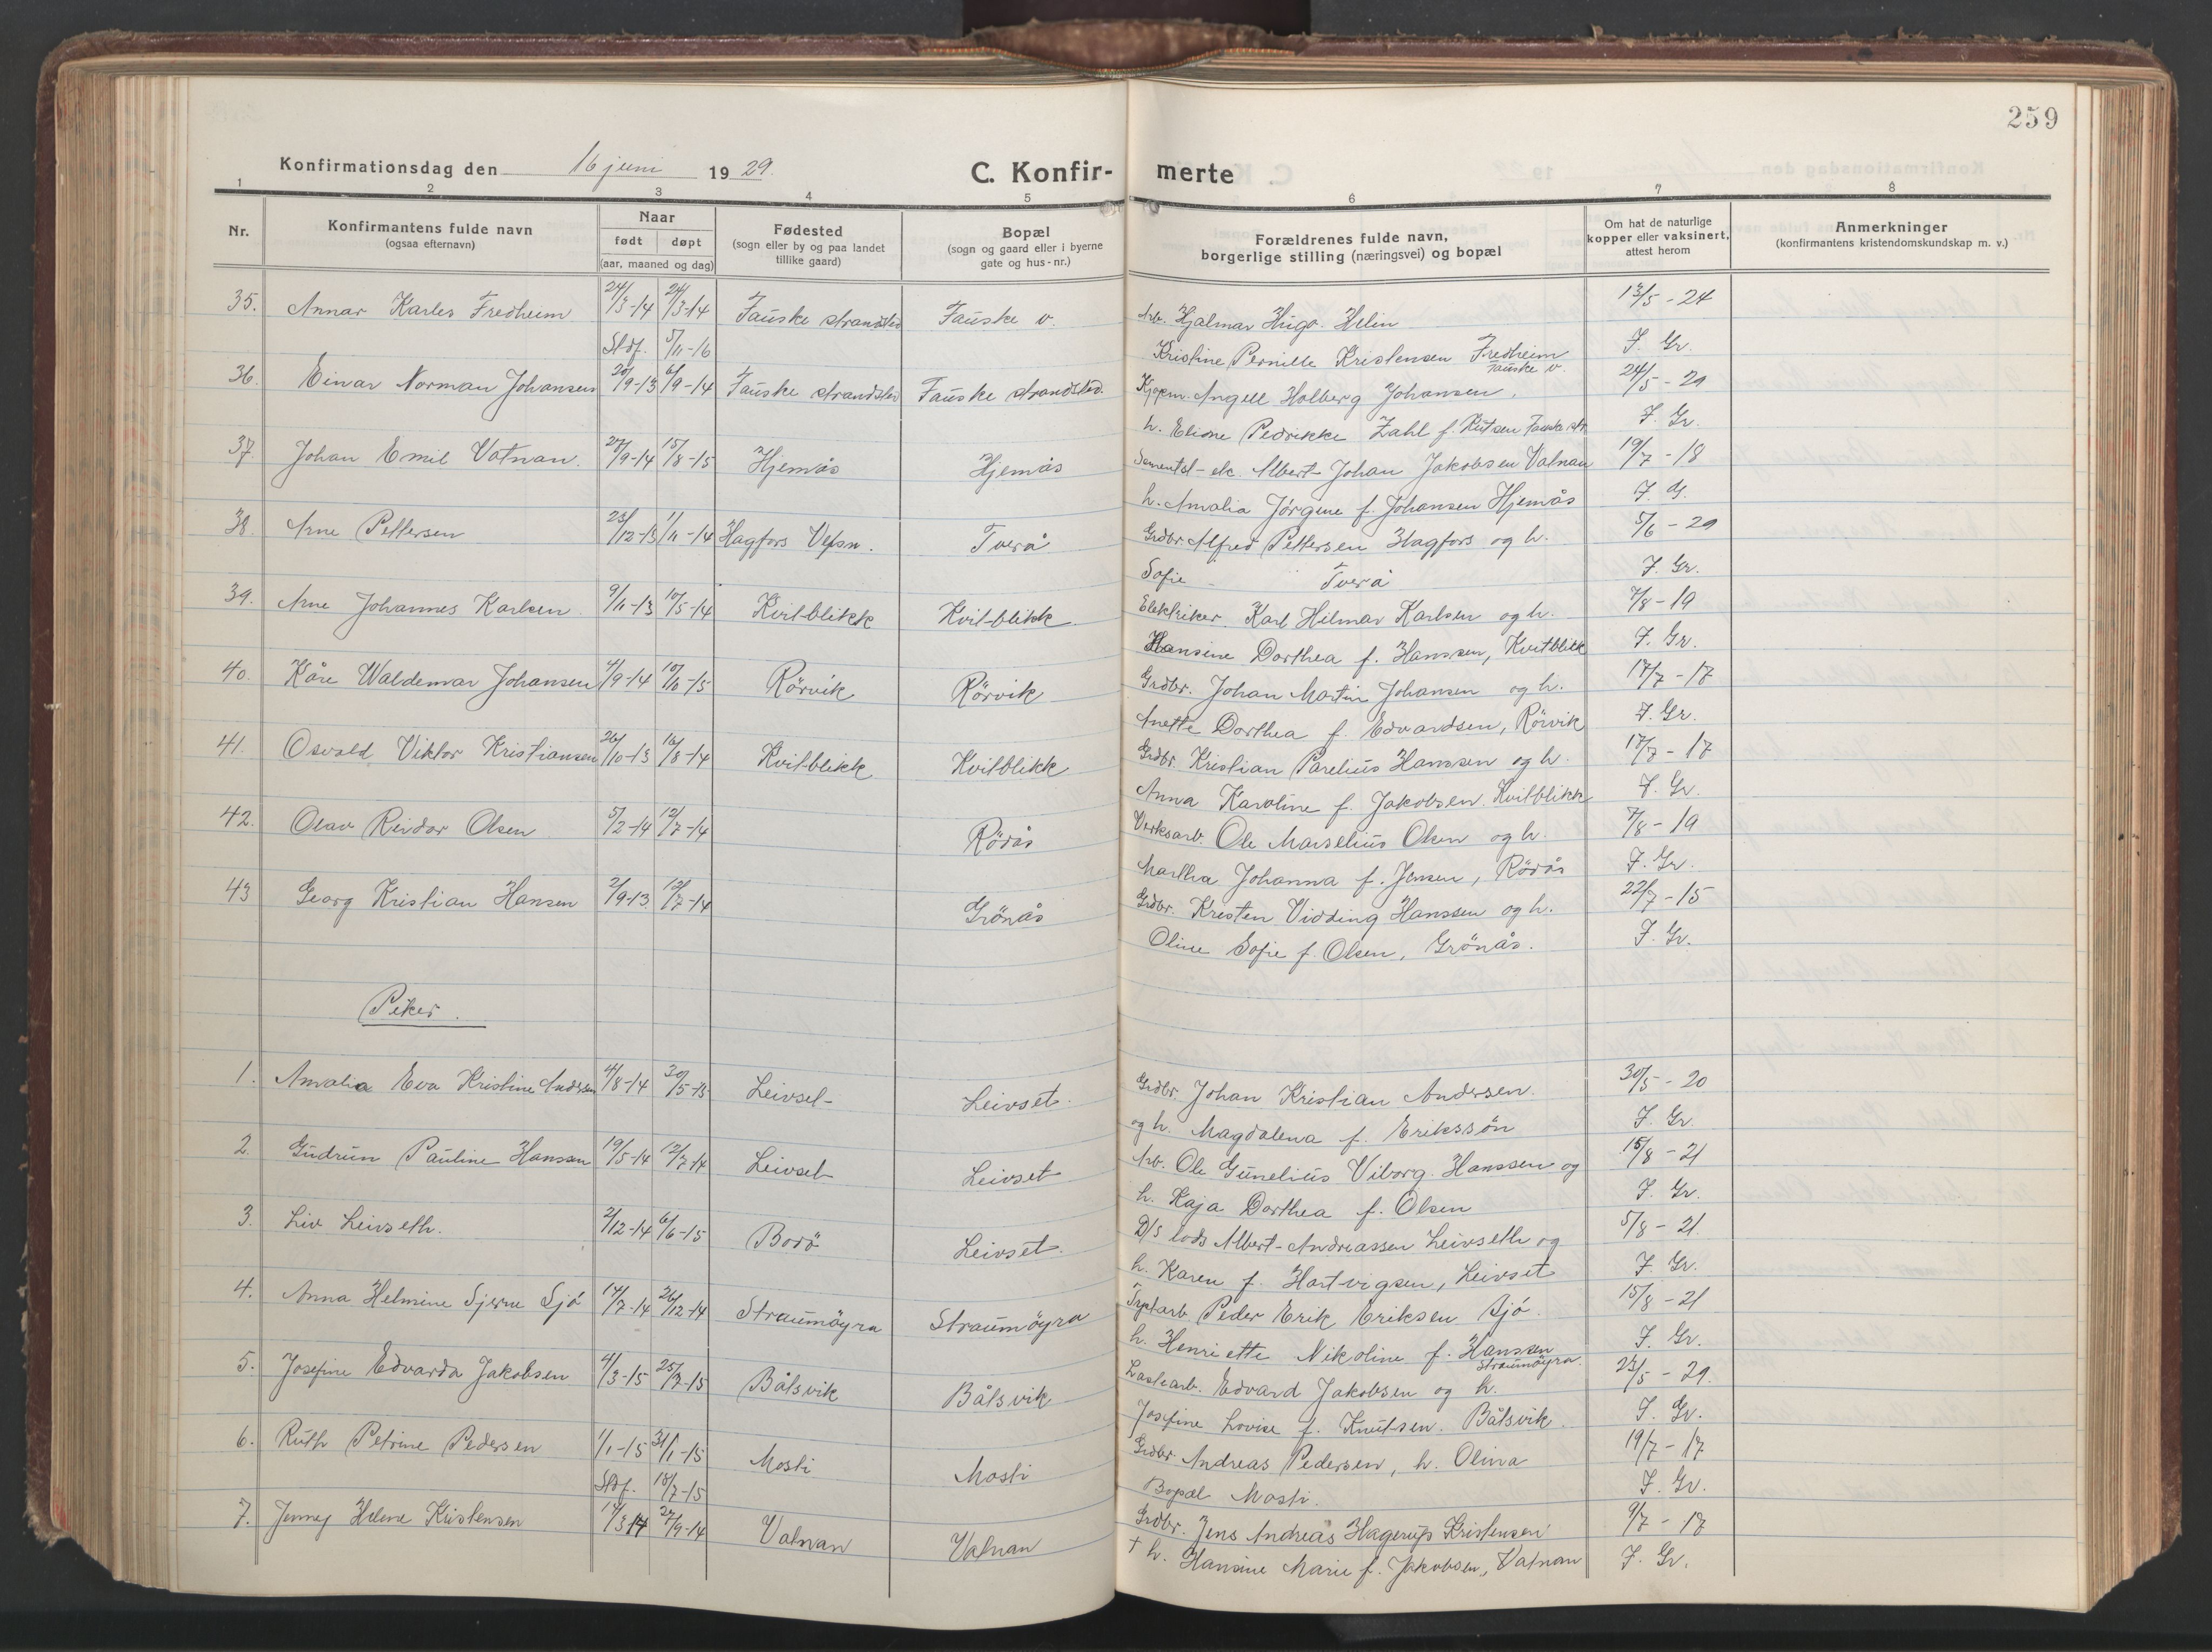 259
Konfirmationsdag den 16 juni 1929.
C. Konfirmerte
1 2 3 4 5 6 7 8
Nr.
Konfirmantens fulde navn
(ogsaa efternavn)
Naar
født døpt
(aar, maaned og dag)
Fødested
(sogn eller by og paa landet
tillike gaard)
Bopæl
(sogn og gaard eller i byerne
gate og hus-nr.)
Forældrenes fulde navn,
borgerlige stilling (næringsvei) og bopæl
Om hat de naturlige
kopper eller vaksinert,
attest herom
Anmerkninger
(konfirmantens kristendomskundskap m. v.)
35. Annar Karles Fredheim 24/3-14 24/3-14 Fauske strandsted Fauske v. Arb. Hjalmar Hugo Helin 13/5-24
Stdf. 5/11-16 Kristine Pernille Kristensen Fredheim J. Gr.
Fauske v.
36. Einar Norman Johansen 20/9-13 6/9-14 Fauske strandsted Fauske strandsted. Kjøpm. Angell Holberg Johansen. 24/5-29
h. Eline Pedrikke Zahl f. Knutsen Fauske str. J. Gr.
37. Johan Emil Vatnan. 27/9-14 15/8-15 Hjemås Hjemås Albert Johan Jakobsen Vatnan 19/7-18
h. Amalia Jørgine f. Johansen Hjemås J. G.
38. Arne Pettersen 23/12-13 1/11-14 Hagfors Vefsn. Tverå Grdbr Alfred Pettersen Hagfors og h. 5/6-29
Sofie Tverå J. Gr.
39. Arne Johannes Karlsen 9/11-13 10/5-14 Kvitblikk Kvitblikk Elektriker Karl Hilmar Karlsen og h. 7/8-19
Hansine Dorthea f. Hanssen, Kvitblikk J. Gr.
40. Kåre Waldemar Johansen 4/9-14 10/10-15 Rörvik Rörvik Grdbr. Johan Martin Johansen og h. 17/7-17
Anette Dorthea f. Edvardsen, Rörvik J. Gr.
41. Osvald Viktor Kristiansen 26/10-13 16/8-14 Kvitblikk Kvitblikk Grdbr Kristian Parelius Hanssen og h. 17/7-17
Anna Karoline f. Jakobsen. Kvitblikk J. Gr.
42. Olav Reidar Olsen 5/2-14 12/7-14 Rörås Verksarb. Ole Marselius Olsen og h. 7/8-19
Martha Johanna f. Jensen, Rörås J. Gr.
43 Georg Kristian Hansen 2/9-13. 12/7-14 Grönås Grdbr. Kresten Vidding Hanssen og h. 22/7-15
Oline Sofie f. Olsen, Grönås. J. Gr.
Piker.
1. Amalia Eva Kristine Andersen 4/8-14 30/5-15 Leivset Leivset. Grdbr. Johan Kristian Andersen. 30/5-20
og h. Magdalena f. Erikssön J. Gr.
2. Gudrun Pauline Hansen 19/5-14 12/7-14 Leivset Leivset Arb. Ole Gunelius Viborg Hanssen og 15/8-21
h. Kaja Dorthea f. Olsen J. Gr.
3. Liv Leivseth. 2/12-14 6/6-15 Bodö Leivset. D/S lods Albert Andreassen Leivseth og 5/8-21
h. Karen f. Hartvigsen, Leivset J. Gr.
4. Anna Helmine Sjø 14/7-14 26/12-14 Straumöyra Straumöyra Peder Erik Eriksen Sjø. 15/8-21
h. Henriette Nikoline f. Hanssen J. Gr.
Straumöyra.
5. Josefine Edvarda Jakobsen 4/3-15 25/7-15 Båtsvik Båtsvik Lastearb. Edvard Jakobsen og h. 23/5-29.
Josefine Lovise f. Knutsen. Båtsvik J. Gr.
6. Ruth Petrine Pedersen 1/1-15 31/1-15 Mosti Mosti Grdbr. Andreas Pedersen, h. Olina 19/7-17
Stdf. 18/7-15 Bopæl Mosti. J. Gr.
7. Jenny Helene Kristensen 17/3 14 27/9-14 Vatnan Vatnan Grdbr. Jens Andreas Hagerup Kristensen 9/7-17
† h. Hansine Marie f. Jakobsen, Vatnan J. Gr.